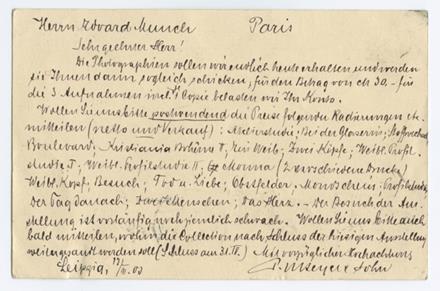 Herrn Edvard Munch Paris
Sehr geehrter Herr!
Die Photographien sollen wir endlich heute erhalten und werden
sie Ihnen dann sogleich schicken, für den Betrag von M 30.- für
die 3 Aufnahmen incl. 1 Copie belasten wir Ihr Konto.
Wollen Sie uns bitte postwendend die Preise folgender Radierungen etc.
mitteilen (netto und Verkauf): Atelierstudie; Bei der
Boulevard; Kristiania Bohème I; Ein Weib; Zwei Köpfe; Weibl. Profil-
studie I; Weibl. Profilstudie II; Madonna (2 verschiedene Drucke)
Weibl. Kopf; Besuch; Tod u. Liebe; Obstfelder; Mondschein; Profilstudie
Der Tag danach; Zwei Menschen; Das Herz. - Der Besuch der Aus-
stellung ist vorläufig noch ziemlich schwach. Wollen Sie uns bitte auch
bald mitteilen, wohin die Collection nach Schluss der hiesigen Ausstellung
weitergesandt werden soll (Schluss am 31. III.) Mit vorzüglicher Hochachtung
Leipzig, III. 03 Beyer & Sohn